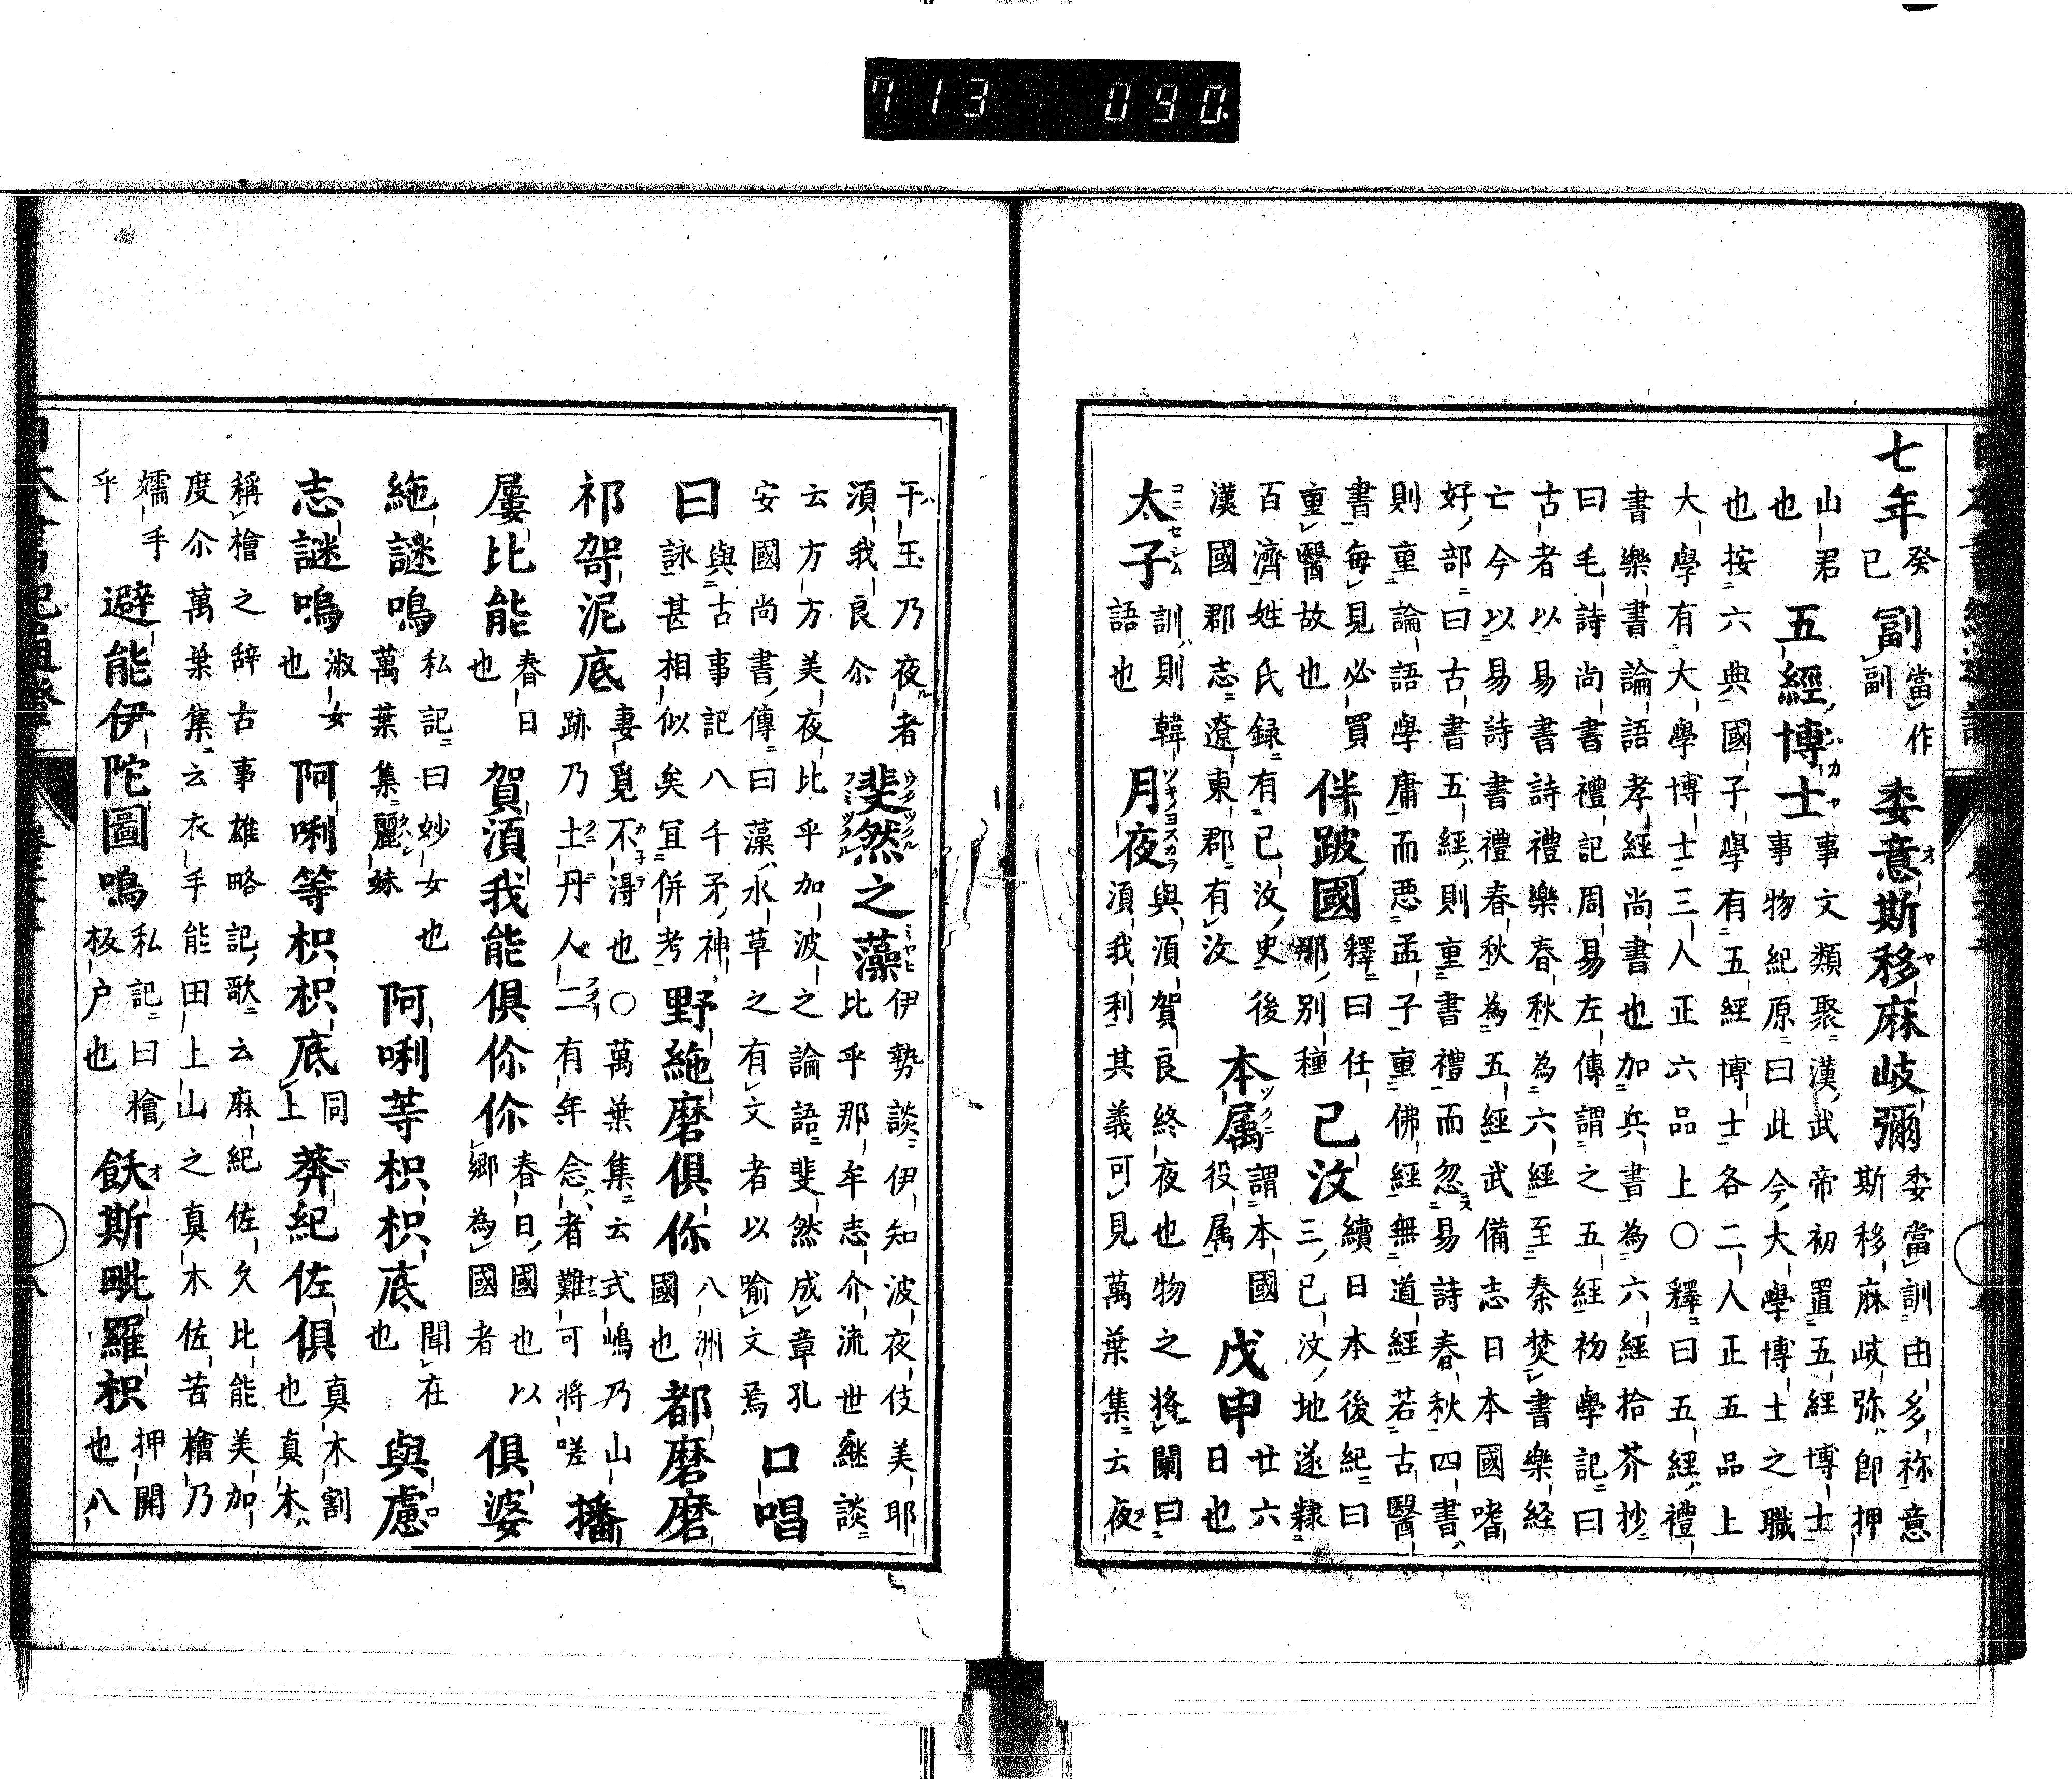 七年癸巳副當作副委意斯移麻岐彌委當訓由多祢意斯移麻岐弥即押
山君也五經博士事文類聚漢武帝初置五經博士事物紀原曰此今大學博士之職
也按六典國子學有五經博士各二人正五品上
大學有大學博士三人正六品上〇釋曰五經禮
書樂書論語孝經尚書也加兵書為六經拾芥抄
曰毛詩尚書禮記周易左傳謂之五經初學記曰
古者以易書詩禮樂春秋為六經至秦焚書樂経
亡今以易詩書禮春秋為五經武備志日本國嗜
好部曰古書五經則重書禮而忽易詩春秋四書
則重論語學庸而悪孟子重佛經無道經若古醫
書每見必買重醫故也伴跛國釋曰任那別種己汶續日本後紀曰三已汶地遂隷
百濟姓氏録有已汶史後漢國郡志遼東郡有汶本属謂本國役属戊申廿六日也
太子訓則韓語也月夜與須賀良終夜也物之將闌曰須我利其義可見萬葉集云夜
干玉乃夜者須我良尒斐然之藻伊勢談伊知波夜伎美耶比乎那牟志介流世継談
云方方美夜比乎加波之論語斐然成章孔安國尚書傳曰藻水草之有文者以喻文焉口唱
曰與古事記八千矛神詠甚相似矣宜併考野絁磨俱伱八洲國也都磨磨
祁哿泥底妻覓不得也〇萬葉集云式嶋乃山跡乃土丹人二有年念者難可将嗟播
屢比能春日也賀須我能俱伱伱春日國也以郷為國者俱婆
絁謎鳴私記曰妙女也萬葉集麗妹阿唎等枳枳底聞在也與慮
志謎鳴淑女也阿唎等枳枳底同上莽紀佐俱真木割也真木
稱檜之辞古事雄略記歌云麻紀佐久比能美加
度尒萬葉集云衣手能田上山之真木佐苦檜乃
嬬手乎避能伊陀圖鳴私記曰檜板户也飫斯毗羅枳押開也八